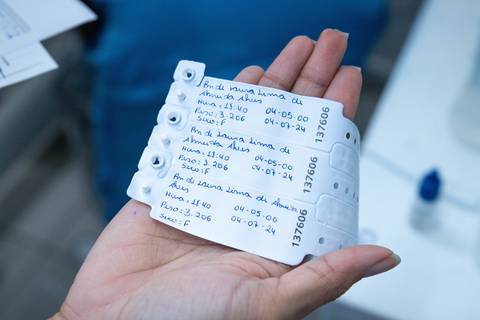 Rn de Laura Lima di
Almeida Alves
Hora: 13:40 04-05-00
Peso: 3.206 04-07-24
Sexo: F
137606
Rn de Laura Lima di
Almeida Alves
Hora: 13:40 04-05-00
Peso: 3.206 04-07-24
Sexo: F
137606
Rn de Laura Lima di Almeida
Alves
Hora: 13:40 04-05-00
Peso: 3.206 04-07-24
Sexo: F
137606